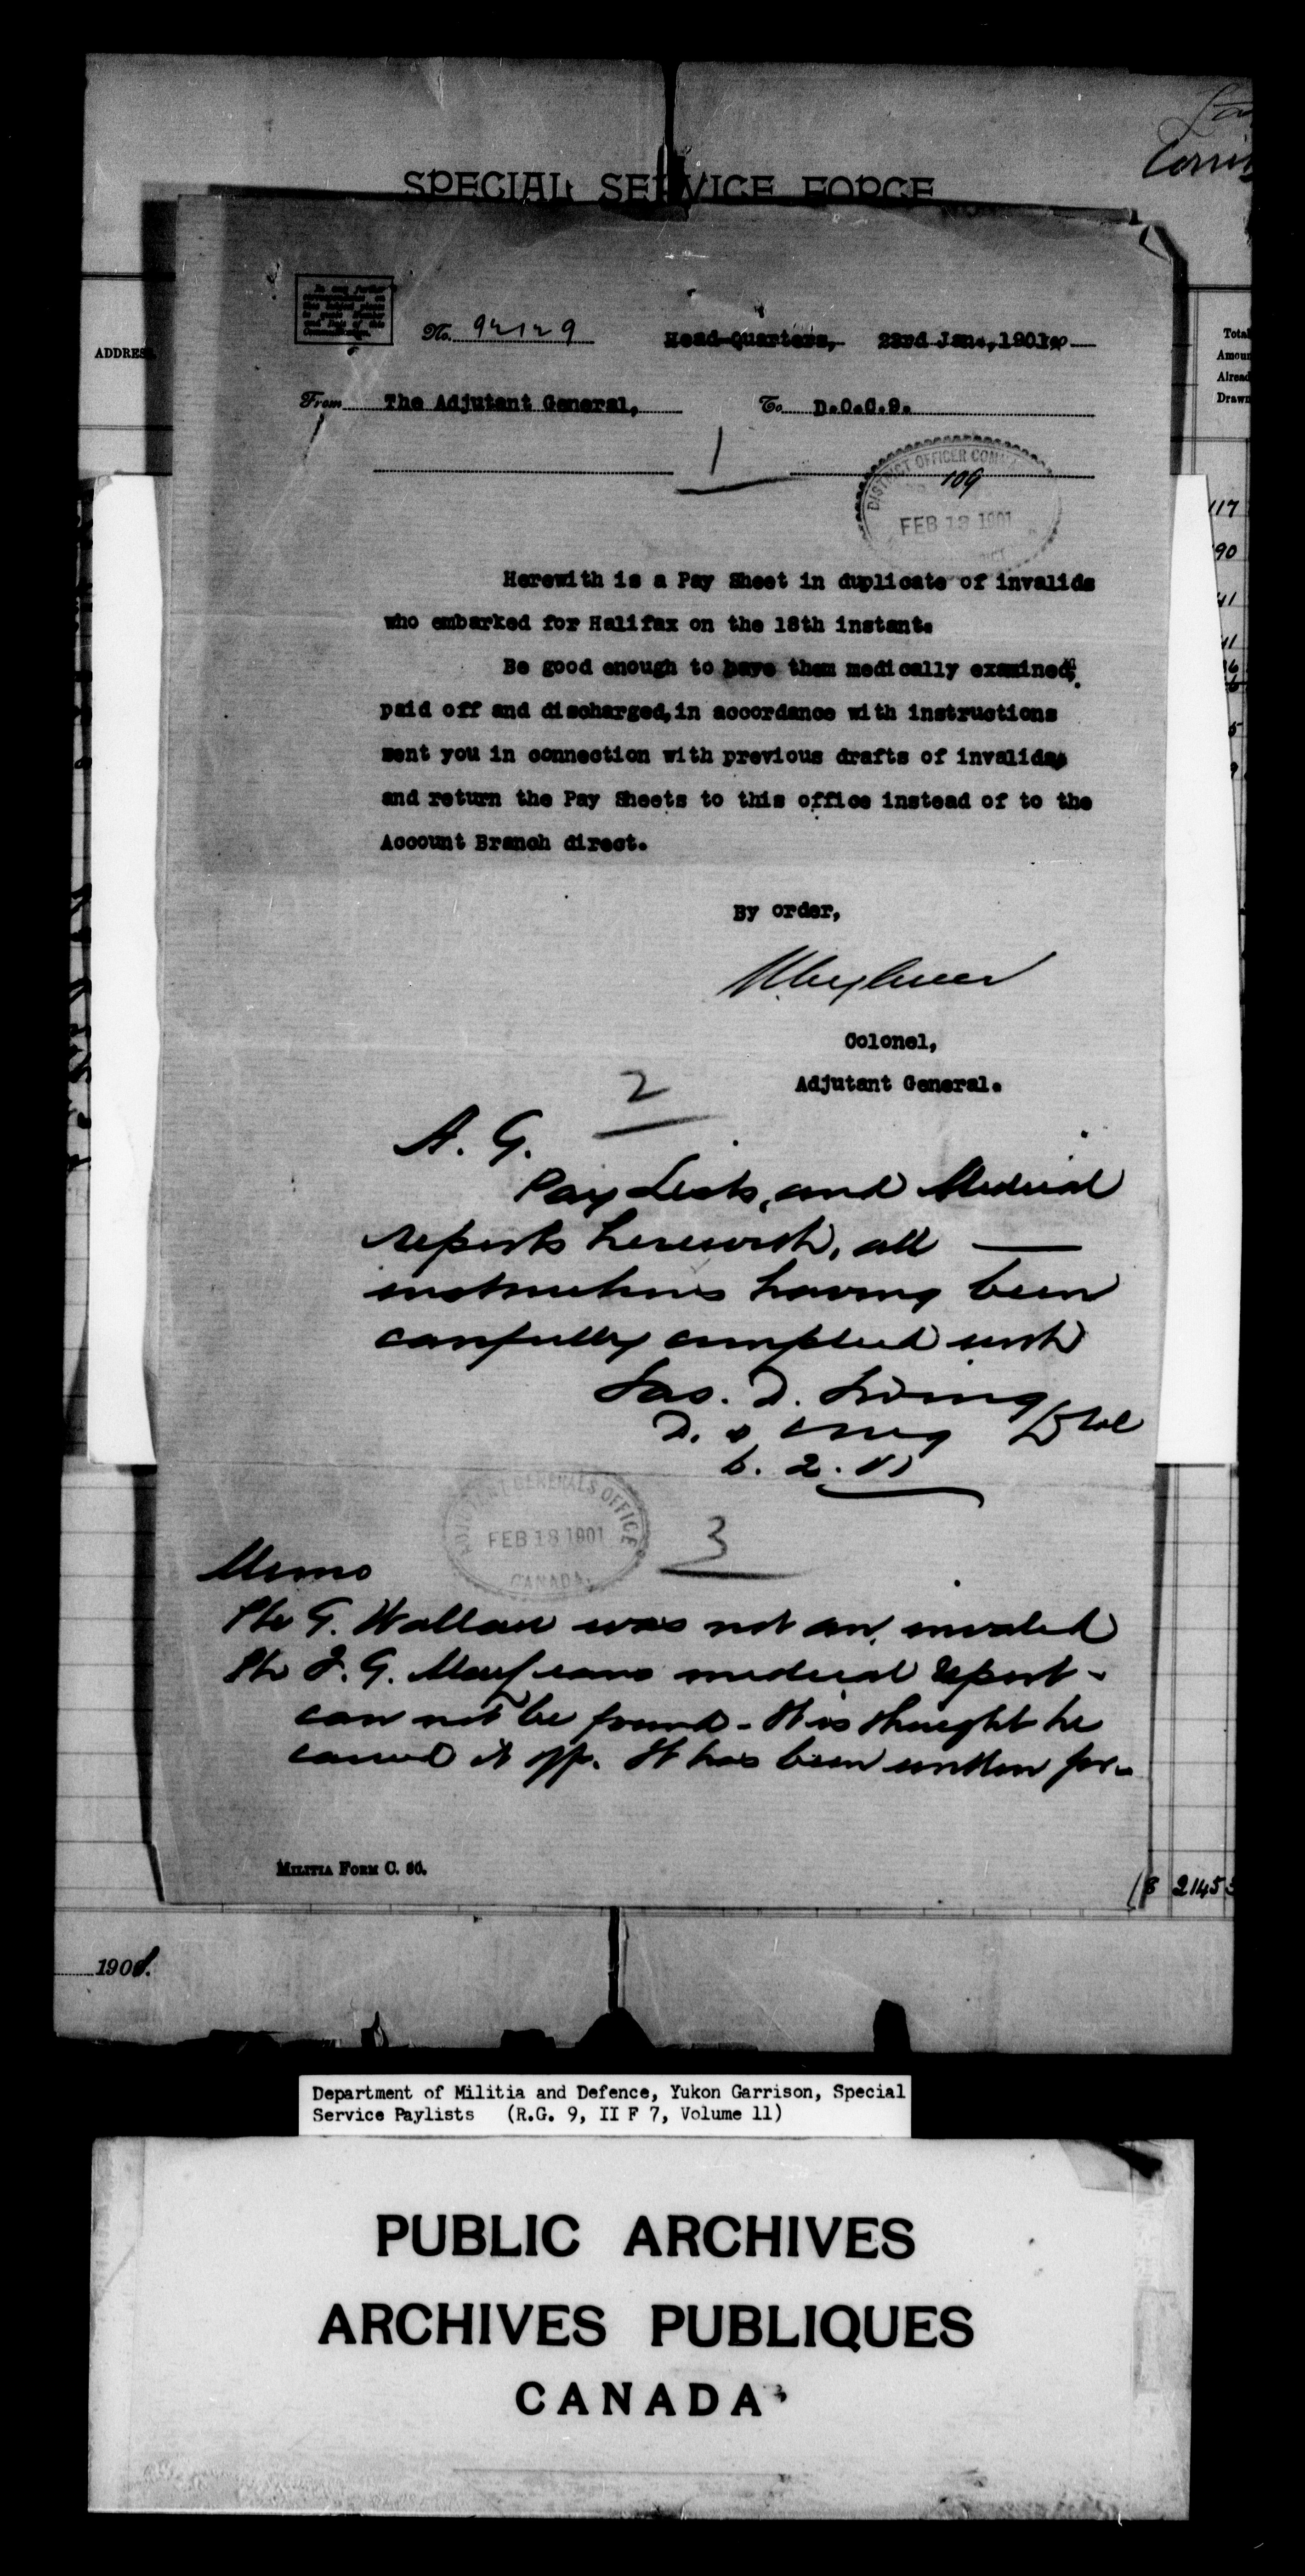 SPECIAL SERVICE FORCE
ADDRESS
Total
Amount
Already
Drawn
No. 92129 Head-Quarters, 23rd Jan., 1901
From The Adjutant General, To D.O.C.9.
1
DISTRICT OFFICER COM
109
FEB 13 1901
Herewith is a Pay Sheet in duplicate of invalids
who embarked for Halifax on the 18th instant.
Be good enough to have them medically examined,
paid off and discharged, in accordance with instructions
sent you in connection with previous drafts of invalids,
and return the Pay Sheets to this office instead of to the
Account Branch direct.
By order,
Colonel,
Adjutant General.
2
A. G.
Pay Lists, and Medical
reports herewith, all —
instructions having been
carefully complied with
Jas. D. Irving
D. O. C. No 9
.2.01
ADJUTANT GENERALS OFFICE
FEB 18 1901
CANADA
3
Memo
Pte G. Wallace was not an invalid
Pte J. G. medical report -
can not be found - It is thought he
carried it off. It has been written for -
MILITIA FORM C. 80.
2145
1901.
Department of Militia and Defence, Yukon Garrison, Special
Service Paylists (R.G. 9, II F 7, Volume 11)
PUBLIC ARCHIVES
ARCHIVES PUBLIQUES
CANADA